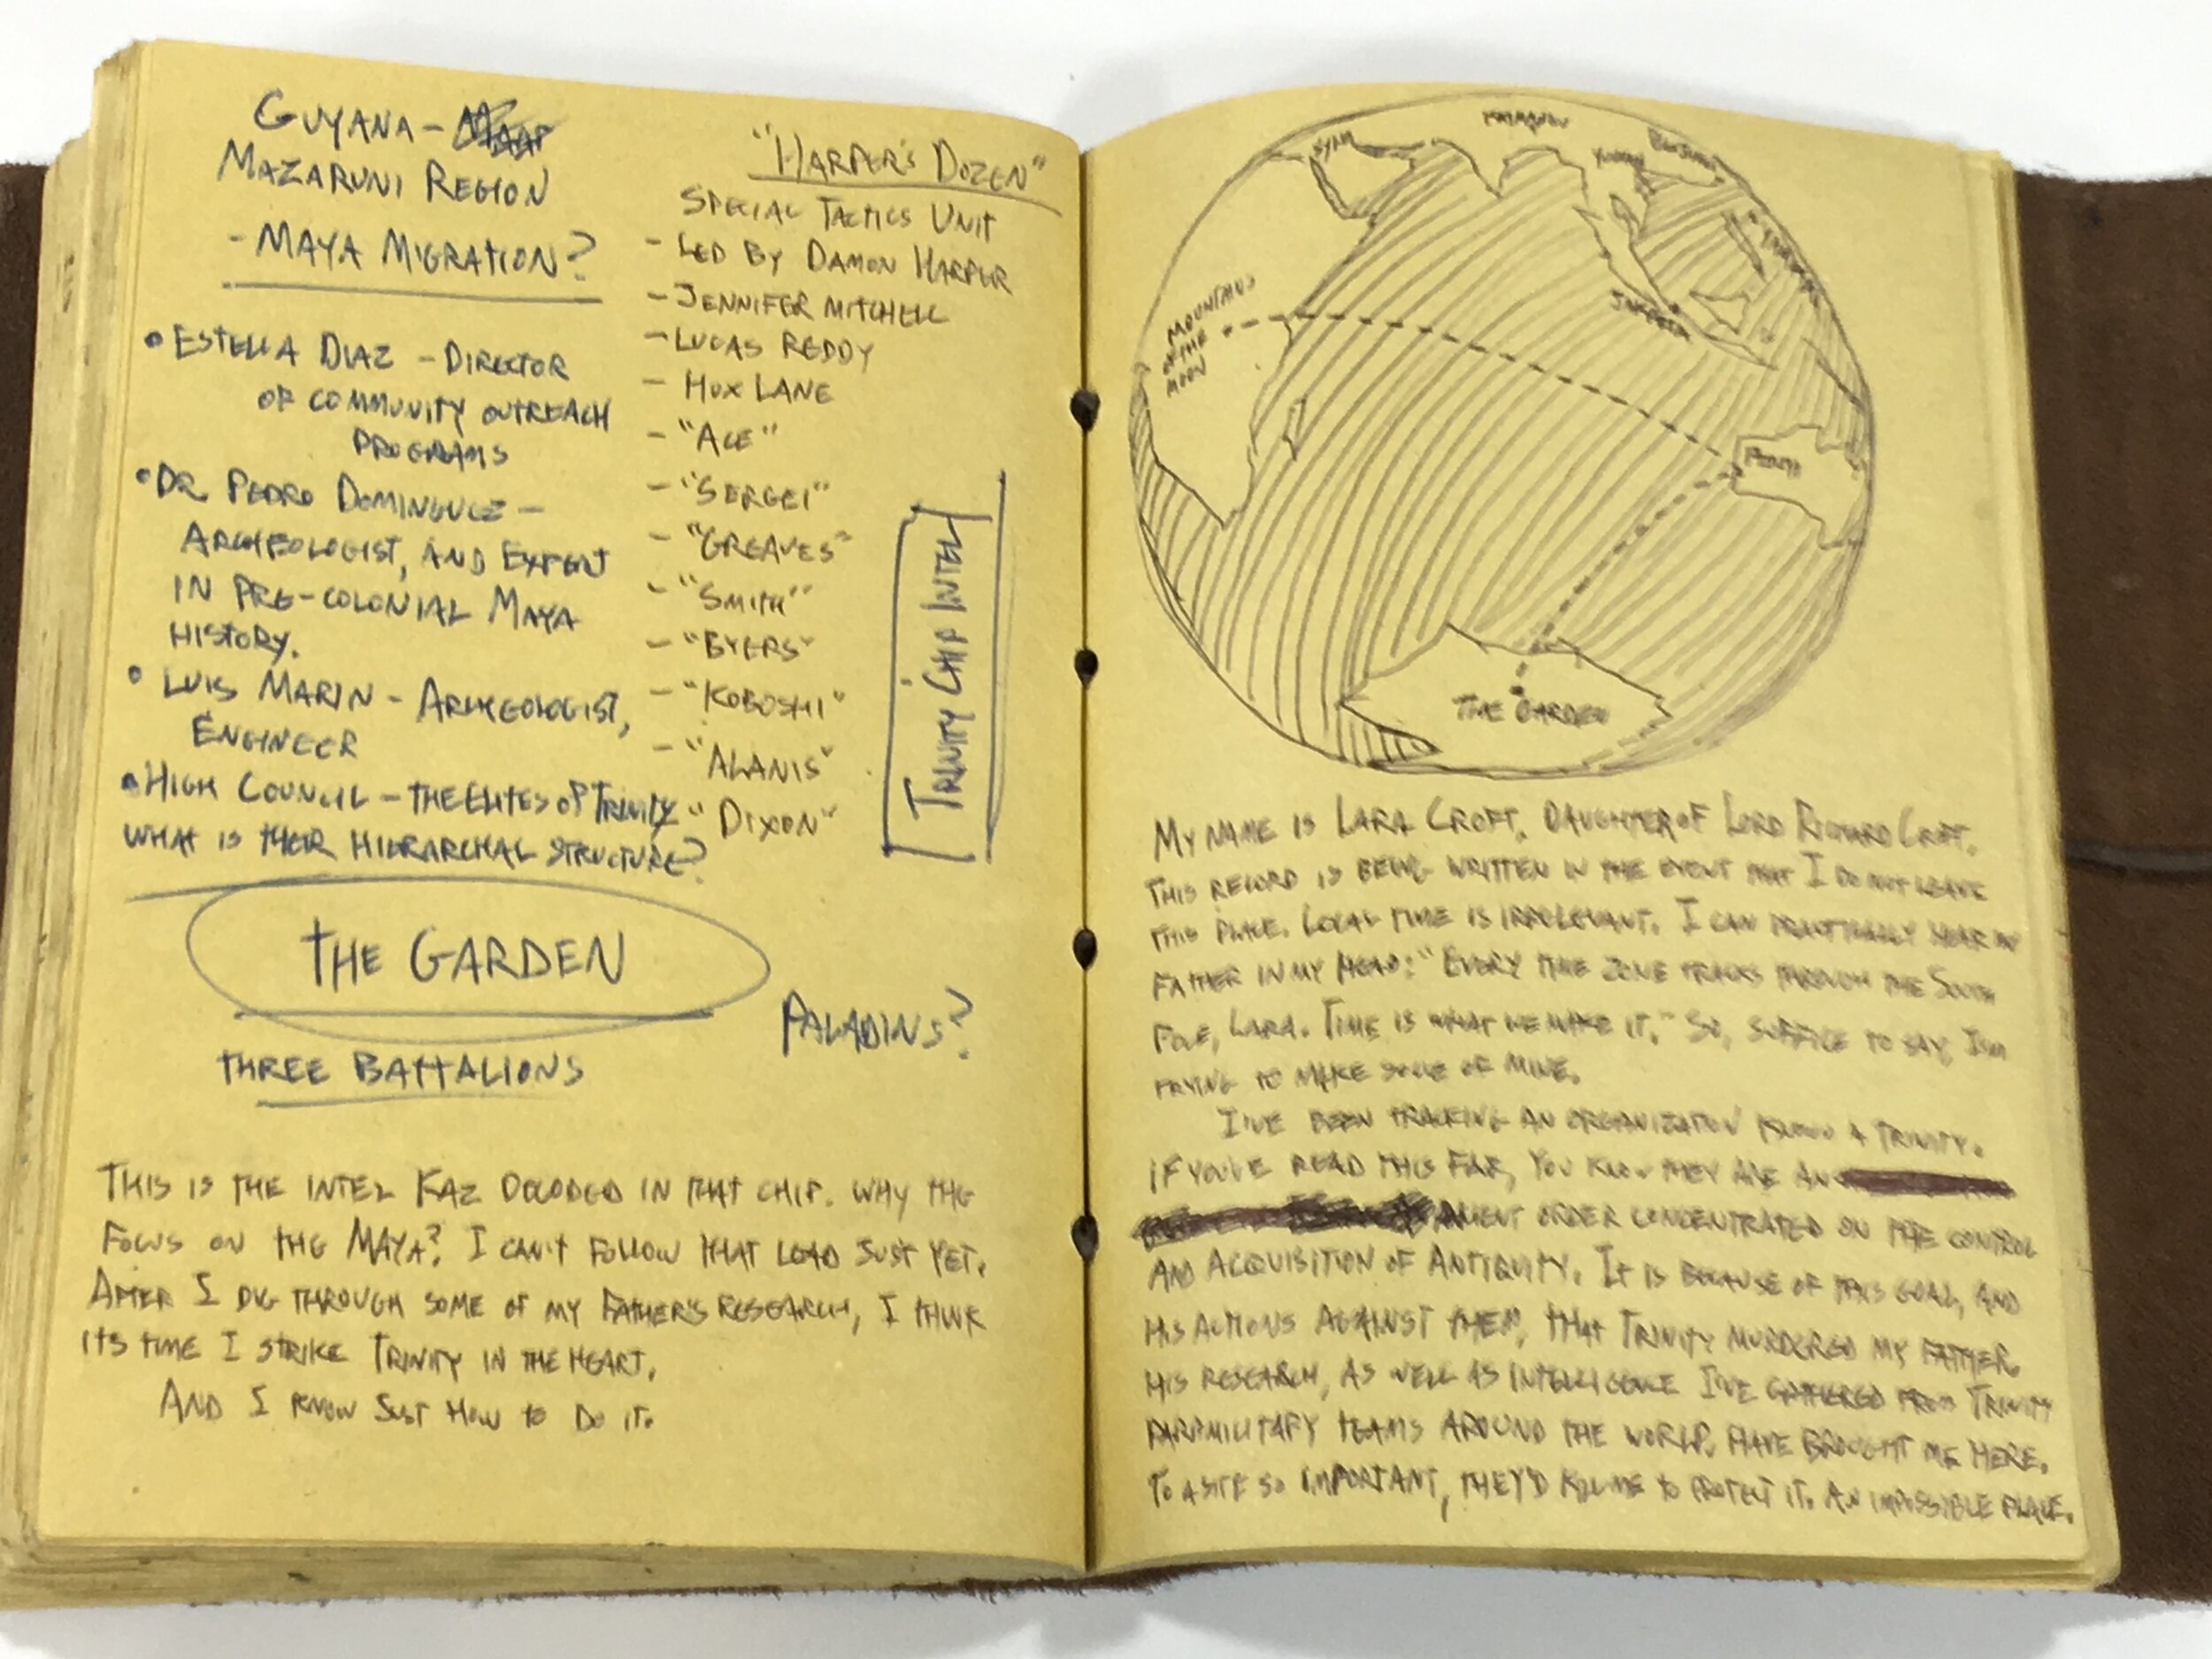 GUYANA -
MAZARUNI REGION
- MAYA MIGRATION?
• ESTELLA DIAZ - DIRECTOR
OF COMMUNITY OUTREACH
PROGRAMS
• DR PEDRO DOMINGUEZ -
ARCHEOLOGIST, AND EXPERT
IN PRE-COLONIAL MAYA
HISTORY.
• LUIS MARIN - ARCHEOLOGIST,
ENGINEER
• HIGH COUNCIL - THE ELITES OF TRINITY
WHAT IS THEIR HIERARCHAL STRUCTURE?
"HARPER'S DOZEN"
SPECIAL TACTICS UNIT
- LED BY DAMON HARPER
- JENNIFER MITCHELL
- LUCAS REDDY
- HUX LANE
- "ACE"
- "SERGEI"
- "GREAVES"
- "SMITH"
- "BYERS"
- "KOBOSHI"
- "ALANIS"
- "DIXON"
TRINITY CHIP INTEL
THE GARDEN
PALADINS?
THREE BATTALIONS
THIS IS THE INTEL KAZ DECODED IN THAT CHIP. WHY THE
FOCUS ON THE MAYA? I CAN'T FOLLOW THAT LEAD JUST YET.
AFTER I DIG THROUGH SOME OF MY FATHER'S RESEARCH, I THINK
ITS TIME I STRIKE TRINITY IN THE HEART.
AND I KNOW JUST HOW TO DO IT.
SYRIA
MOUNTAINS
OF THE
MOON
PERTH
THE GARDEN
MY NAME IS LARA CROFT, DAUGHTER OF LORD RICHARD CROFT.
THIS RECORD IS BEING WRITTEN IN THE EVENT THAT I DO NOT LEAVE
THIS PLACE. LOCAL TIME IS IRRELEVANT. I CAN PRACTICALLY HEAR MY
FATHER IN MY HEAD: "EVERY TIME ZONE TRACKS THROUGH THE SOUTH
POLE, LARA. TIME IS WHAT WE MAKE IT." SO, SUFFICE TO SAY, I'M
TRYING TO MAKE SOME OF MINE.
I'VE BEEN TRACKING AN ORGANIZATION KNOWN A TRINITY.
IF YOU'VE READ THIS FAR, YOU KNOW THEY ARE AN
ANCIENT ORDER CONCENTRATED ON THE CONTROL
AND ACQUISITION OF ANTIQUITY. IT IS BECAUSE OF THIS GOAL, AND
HIS ACTIONS AGAINST THEM, THAT TRINITY MURDERED MY FATHER.
HIS RESEARCH, AS WELL AS INTELLIGENCE I'VE GATHERED FROM TRINITY
PARAMILITARY TEAMS AROUND THE WORLD, HAVE BROUGHT ME HERE.
TO A SITE SO IMPORTANT, THEY'D KILL ME TO PROTECT IT. AN IMPOSSIBLE PLACE.